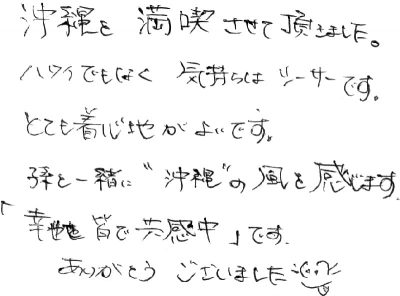 沖縄を満喫させて頂きました。
ハワイでもなく 気持ちは シーサーです。
とても着心地がよいです。
孫と一緒に〝沖縄〟の風を感じます
「幸せを皆で共感中」です。
ありがとう ございました